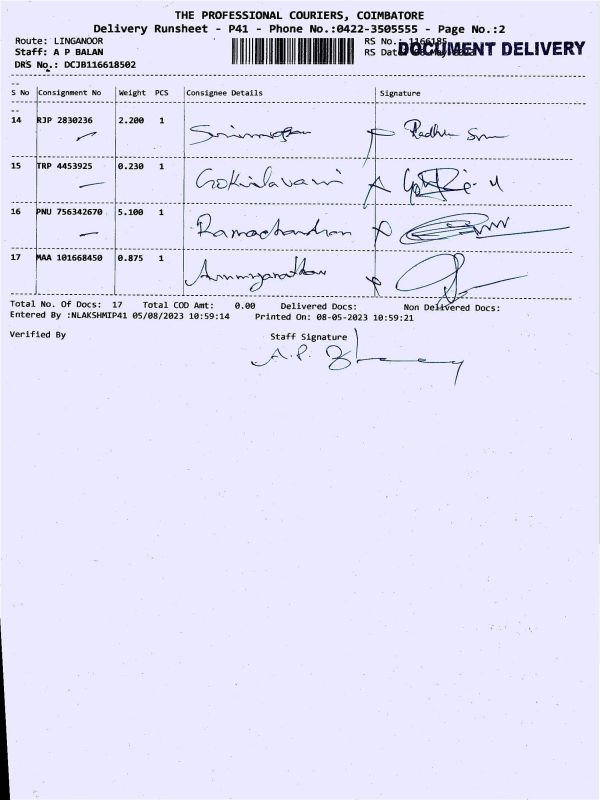 THE PROFESSIONAL COURIERS, COIMBATORE
Delivery Runsheet - P41 - Phone No.:0422-3505555 - Page No.:2
Route: LINGANOOR
RS No.: 1166185
Staff: A P BALAN
RS Dat
DOCUMENT DELIVERY
DRS No.: DCJB116618502
S No Consignment No Weight PCS Consignee Details Signature
14 RJP 2830236 2.200 1
15 TRP 4453925 0.230 1 Gokilavani
16 PNU 756342670 5.100 1 Ramachandran
17 MAA 101668450 0.875 1
Total No. Of Docs: 17 Total COD Amt: 0.00 Delivered Docs: Non Delivered Docs:
Entered By :NLAKSHMIP41 05/08/2023 10:59:14 Printed On: 08-05-2023 10:59:21
Verified By Staff Signature
A.P.